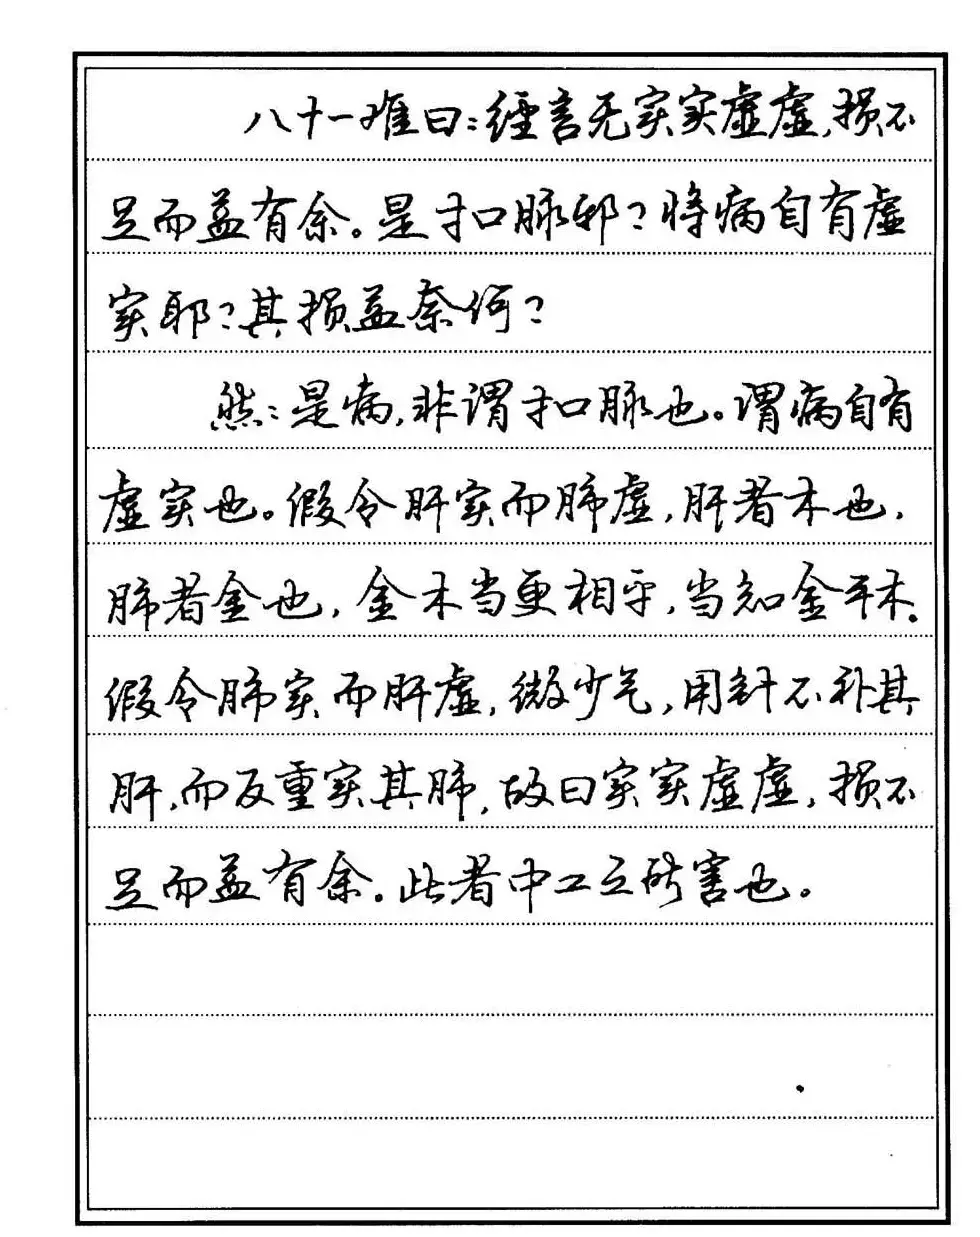 八十一难曰：经言无实实虚虚，损不
足而益有余。是寸口脉耶？将病自有虚
实耶？其损益奈何？
然：是病，非谓寸口脉也。谓病自有
虚实也。假令肝实而肺虚，肝者木也，
肺者金也，金木当更相平，当知金平木。
假令肺实而肝虚，微少气，用针不补其
肝，而反重实其肺，故曰实实虚虚，损不
足而益有余。此者中工之所害也。